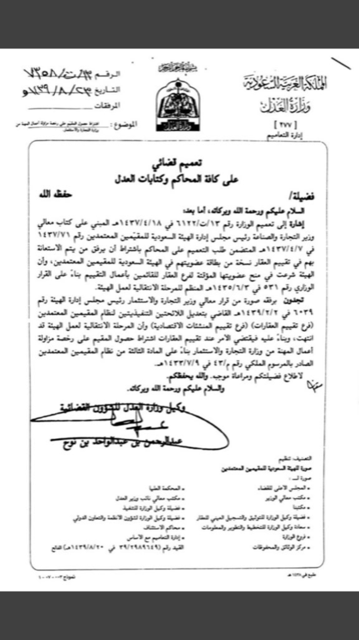 المملكة العربية السعودية
وزارة العدل
[٢٧٧]
إدارة التعاميم
الرقم ١٣/ت/٧٣٥٨
التاريخ ١٤٣٩/٨/٢٣هـ
المرفقات
الموضوع: اشتراط حصول المقيم على رخصة مزاولة أعمال المهنة من وزارة التجارة والاستثمار.
تعميم قضائي
على كافة المحاكم وكتابات العدل
فضيلة/ حفظه الله
السلام عليكم ورحمة الله وبركاته، أما بعد:
إشارة إلى تعميم الوزارة رقم ١٣/ت/٦١٢٢ في ١٤٣٧/٤/١٨هـ المبني على كتاب معالي
وزير التجارة والصناعة رئيس مجلس إدارة الهيئة السعودية للمقيمين المعتمدين رقم ١٤٣٧/٧١
في ١٤٣٧/٤/٧هـ المتضمن طلب التعميم على المحاكم باشتراط أن يرفق من يتم الاستعانة
بهم في تقييم العقار نسخة من بطاقة عضويتهم في الهيئة السعودية للمقيمين المعتمدين، وأن
الهيئة شرعت في منح عضويتها المؤقتة لفرع العقار للقائمين بأعمال التقييم بناءً على القرار
الوزاري رقم ٥٣١ في ١٤٣٥/٦/٣هـ المنظم للمرحلة الانتقالية لعمل الهيئة.
تجدون برفقه صورة من قرار معالي وزير التجارة والاستثمار رئيس مجلس إدارة الهيئة رقم
٦٠٣٩ في ١٤٣٩/٢/٢هـ القاضي بتعديل اللائحتين التنفيذيتين لنظام المقيمين المعتمدين
(فرع تقييم العقارات) (فرع تقييم المنشآت الاقتصادية) وأن المرحلة الانتقالية لعمل الهيئة قد
انتهت، وبناءً عليه فيقتضي الأمر عند تقييم العقارات اشتراط حصول المقيم على رخصة مزاولة
أعمال المهنة من وزارة التجارة والاستثمار بناءً على المادة الثالثة من نظام المقيمين المعتمدين
الصادر بالمرسوم الملكي رقم م/٤٣ في ١٤٣٣/٧/٩هـ.
لاطلاع فضيلتكم ومراعاة موجبه. والله يحفظكم.
والسلام عليكم ورحمة الله وبركاته.
وكيل وزارة العدل للشؤون القضائية
عبدالرحمن بن عبدالواحد بن نوح
التصنيف: تنظيم
صورة للهيئة السعودية للمقيمين المعتمدين
صورة لـ:
• المجلس الأعلى للقضاء
• المحكمة العليا
• مكتب معالي الوزير
• مكتب معالي نائب وزير العدل
• مكتبنا
• فضيلة وكيل الوزارة للتنفيذ
• فضيلة وكيل الوزارة للتوثيق والتسجيل العيني للعقار
• فضيلة وكيل الوزارة لشؤون الأنظمة والتعاون الدولي
• سعادة وكيل الوزارة للتخطيط والتطوير والمعلومات
• محاكم الاستئناف
• فروع الوزارة
• إدارة التعاميم مع الأساس
• مركز الوثائق والمحفوظات
القيد رقم (٣٩/٢٩٨٩١٤٩) في ١٤٣٩/٨/٢٠هـ